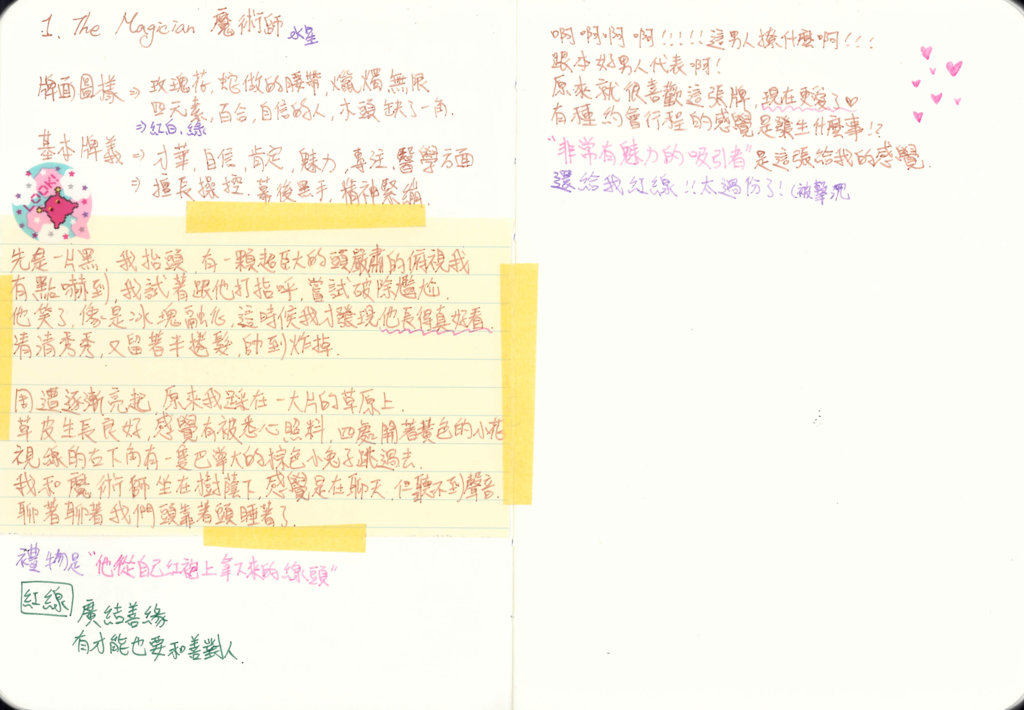 1. The Magician 魔術師 水星
牌面圖樣 ⇒ 玫瑰花, 蛇做的腰帶, 蠟燭, 無限
四元素, 百合, 自信的人, 木頭缺了一角.
⇒ 紅白, 綠
基本牌義 ⇒ 才華, 自信, 肯定, 魅力, 專注, 醫學方面
⇒ 擅長操控. 幕後黑手, 精神緊繃.
LOOK!
先是一片黑, 我抬頭, 有一顆超巨大的頭嚴肅的俯視我
有點嚇到, 我試著跟他打招呼, 嘗試破除尷尬.
他笑了, 像是冰塊融化, 這時侯我才發現他長得真好看.
清清秀秀, 又留著半捲髮, 帥到炸掉.
周遭逐漸亮起, 原來我踩在一大片的草原上.
草皮生長良好, 感覺有被悉心照料, 四處開著黃色的小花
視線的右下角有一隻巴掌大的棕色小兔子跳過去.
我和魔術師坐在樹蔭下, 感覺是在聊天, 但聽不到聲音.
聊著聊著我們頭靠著頭睡著了.
禮物是"他從自己紅袍上拿下來的線頭"
紅線 廣結善緣
有才能也要和善對人.
啊啊啊啊!!!!! 這男人撩什麼啊!!!
跟本好男人代表啊!
原來就很喜歡這張牌, 現在更愛了♡
有種約會行程的感覺是發生什麼事!?
"非常有魅力的吸引者"是這張給我的感覺.
還給我紅線!!太過份了! (被擊沉